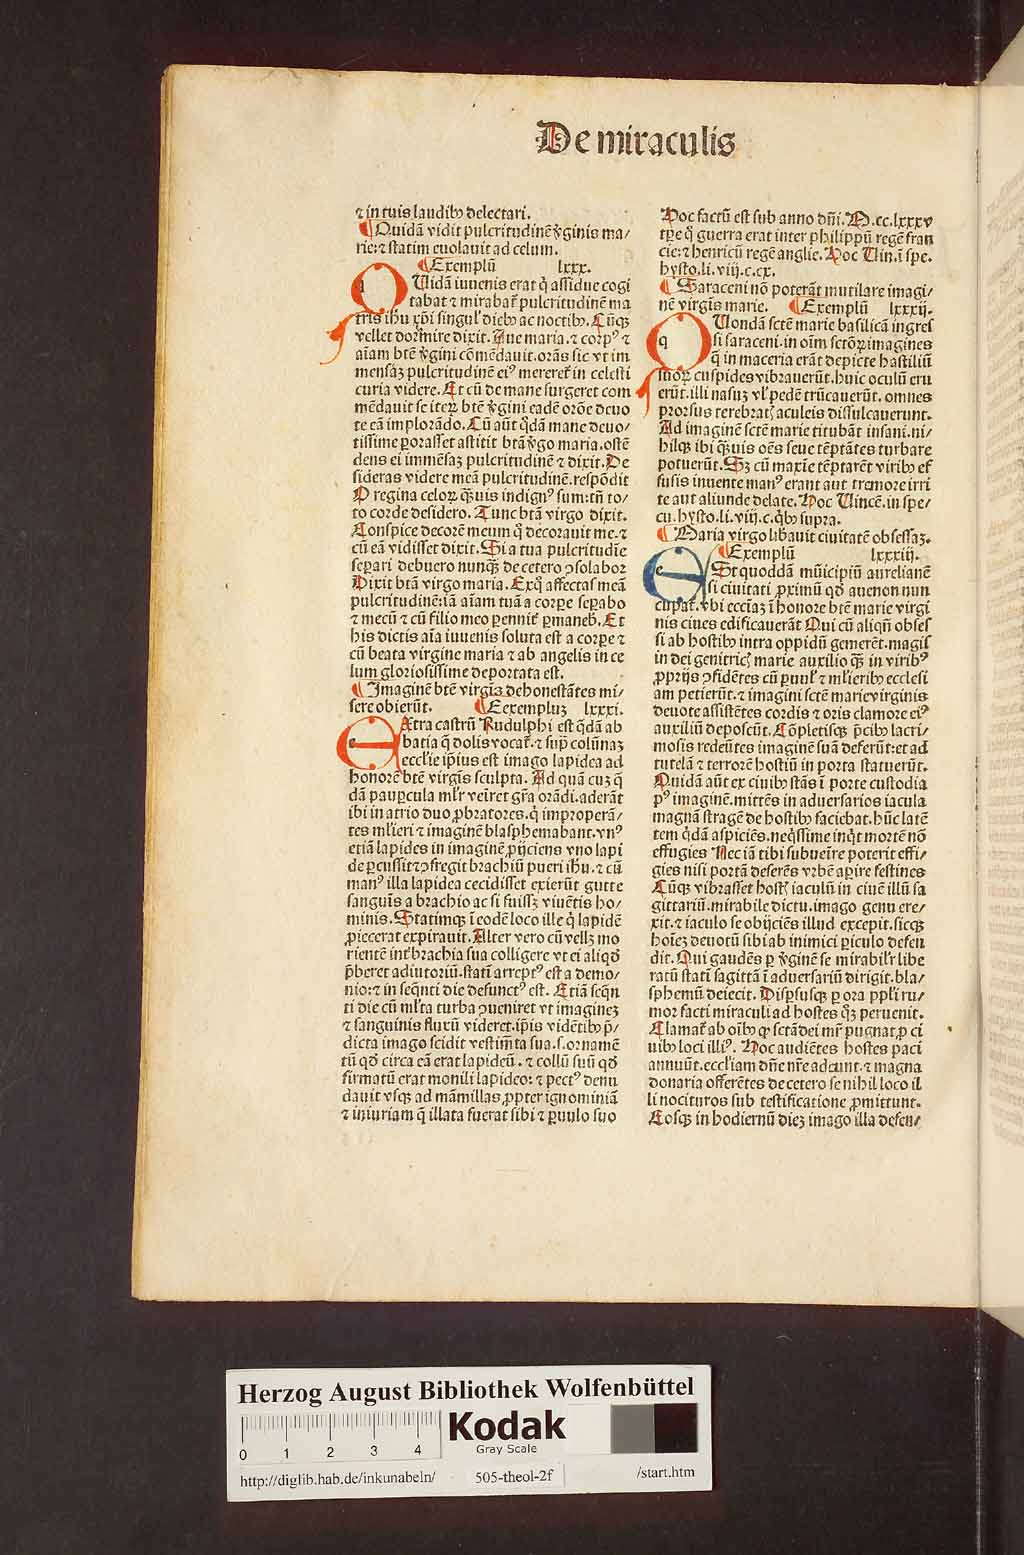 De miraculis
⁊ in tuis laudibꝰ delectari.
¶ Quidā vidit pulcritudinē v̓ginis ma/
rie: ⁊ statim euolauit ad celum.
¶ Exemplū lxxx.
QUidā iuuenis erat q̇ assidue cogi
tabat ⁊ mirabat᷑ pulcritudinē ma
tris ihū xp̄i singul̓ diebꝫ ac noctibꝫ. Cūqꝫ
vellet dormire dixit. Aue maria. ⁊ corpꝰ ⁊
aīam btē v̓gini cōmēdauit. orās sic vt im
mensaꝫ pulcritudinē eiꝰ mereret᷑ in celesti
curia videre. Et cū de mane surgeret com
mēdauit se iteꝝ btē v̓gini eadē orōe deuo
te eā implorādo. Cū aūt q̄dā mane deuo/
tissime ꝑorasset astitit btā v̓go maria. ostē
dens ei immēsaꝫ pulcritudinē ⁊ dixit. De
sideras videre meā pulcritudinē. respōdit
O regina celoꝝ q̄ꝫuis indignꝰ sum: tn̄ to/
to corde desidero. Tunc btā virgo dixit.
Conspice decorē meum q̇ decorauit me. ⁊
cū eā vidisset dixit. Si a tua pulcritudīe
seꝑari debuero nunq̄ꝫ de cetero ↄsolabor
Dixit btā virgo maria. Exq̇ affectas meā
pulcritudinē: iā aīam tuā a corꝑe seꝑabo
⁊ mecū ⁊ cū filio meo ꝑennit̓ ꝑmaneb̓. Et
his dictis aīa iuuenis soluta est a corꝑe ⁊
cū beata virgine maria ⁊ ab angelis in ce
lum gloriosissime deportata est.
¶ Imaginē btē virgīs dehonestātes mi/
sere obierūt. ¶ Eexempluꝫ lxxxi.
EXtra castrū Rudulphi est q̄dā ab
batia q̄ dolis vocat᷑. ⁊ suꝑ colūnaꝫ
eccl̓ie ip̄ius est imago lapidea ad
honorē btē virgīs sculpta. Ad quā cuꝫ q̄
dā pauꝑcula ml̓r veīret gr̄a orādi. aderāt
ibi in atrio duo ꝓbratores. q̇ improperā/
tes ml̓ieri ⁊ imaginē blasphemabant. vnꝰ
etiā lapides in imaginē ꝓijciens vno lapi
de ꝑcussit ⁊ ↄfregit brachiū pueri ihū. ⁊ cū
manꝰ illa lapidea cecidisset exierūt gutte
sanguīs a brachio ac si fuisꝫ viuētis ho/
minis. Statimqꝫ ī eodē loco ille q̇ lapidē
ꝓiecerat expirauit. Alter vero cū vellꝫ mo
rientē int̓ brachia sua colligere vt ei aliqd̓
p̄beret adiutoriū. statī arreptꝰ est a demo/
nio: ⁊ in seq̄nti die defunctꝰ est. Etiā seq̄n
ti die cū ml̓ta turba ↄueniret vt imagineꝫ
⁊ sanguinis fluxū videret. ip̄is vidētibꝫ p̄/
dicta imago scidit vestim̄ta sua. s. ornamē
tū qd̓ circa eā erat lapideū. ⁊ collū suū qd̓
firmatū erat monili lapideo: ⁊ pectꝰ denu
dauit vsqꝫ ad māmillas ꝓpter ignominiā
⁊ iniuriam q̄ illata fuerat sibi ⁊ ꝑuulo suo
Hoc factū est sub anno dn̄i. M.cc.lxxxv
tꝑe q̇ guerra erat inter philippū regē fran
cie: ⁊ henricū regē anglie. Hoc Uin. ī spe.
hysto. li. viij. c. cx.
¶ Saraceni nō poterāt mutilare imagi/
nē virgīs marie. ¶ Exemplū lxxxij.
QUondā sctē marie basilicā ingres
si saraceni. in oīm sctōꝝ imagines
q̄ in maceria erāt depicte hastiliū
suoꝝ cuspides vibrauerūt. huic oculū eru
erūt. illi nasuꝫ vl̓ pedē trūcauerūt. omnes
prorsus terebratꝭ aculeis dissulcauerunt.
Ad imaginē sctē marie titubāt insani. ni/
hilqꝫ ibi q̄ꝫuis oēs seue tēptātes turbare
potuerūt. Sꝫ cū maxīe tēptarēt viribꝫ ef
fusis inuente manꝰ erant aut tremore irri
te aut aliunde delate. Hoc Uincē. in spe/
cu. hysto. li. viij. c. q̇bꝫ supra.
¶ Maria virgo libauit ciuitatē obsessaꝫ.
¶ Exemplū lxxxiij.
ESt quoddā mūicipiū aurelianē
si ciuitati ꝓximū qd̓ auenon nun
cupat᷑. vbi eccīaꝫ ī honore btē marie virgi
nis ciues edificauerāt Qui cū aliqn̄ obses
si ab hostibꝫ intra oppidū gemerēt. magis
in dei genitricꝭ marie auxilio q̄ꝫ in viribꝰ
ꝓprijs ↄfidētes cū ꝑuul̓ ⁊ ml̓ieribꝫ ecclesi
am petierūt. ⁊ imagini sctē marie virginis
deuote assistētes cordis ⁊ oris clamore eiꝰ
auxiliū deposcūt. Cōpletisqꝫ p̄cibꝫ lacri/
mosis redeūtes imaginē suā deferūt: et ad
tutelā ⁊ terrorē hostiū in porta statuerūt.
Quidā aūt ex ciuibꝫ stās ī porte custodia
pꝰ imaginē. mittēs in aduersarios iacula
magnā stragē de hostibꝫ faciebat. hūc latē
tem q̄dā aspiciēs. neq̄ssime inq̇t mortē nō
effugies Nec iā tibi subueīre poterit effi/
gies nisi portā deserēs vrbē aꝑire festines
Cūqꝫ vibrasset hostꝭ iaculū in ciuē illū sa
gittariū. mirabile dictu. imago genu ere/
xit. ⁊ iaculo se obijciēs illud excepit. sicqꝫ
hoīeꝫ deuotū sibi ab inimici ꝑiculo defen
dit. Qui gaudēs ꝑ v̓ginē se mirabil̓r libe
ratū statī sagittā ī aduersariū dirigit. bla/
sphemū deiecit. Disꝑsusqꝫ ꝑ ora ppl̓i ru/
mor facti miraculi ad hostes q̄qꝫ peruenit.
Clamat᷑ ab oībꝫ ꝙ sctā dei mr̄ pugnat ꝓ ci
uibꝫ loci illiꝰ. Hoc audiētes hostes paci
annuūt. eccl̓iam dn̄e nr̄e adeunt. ⁊ magna
donaria offerētes de cetero se nihil loco il
li nocituros sub testificatione ꝓmittunt.
Eosqꝫ in hodiernū dieꝫ imago illa defen/
Herzog August Bibliothek Wolfenbüttel
0 1 2 3 4
Kodak
Gray Scale
http://diglib.hab.de/inkunabeln/ 505-theol-2f /start.htm